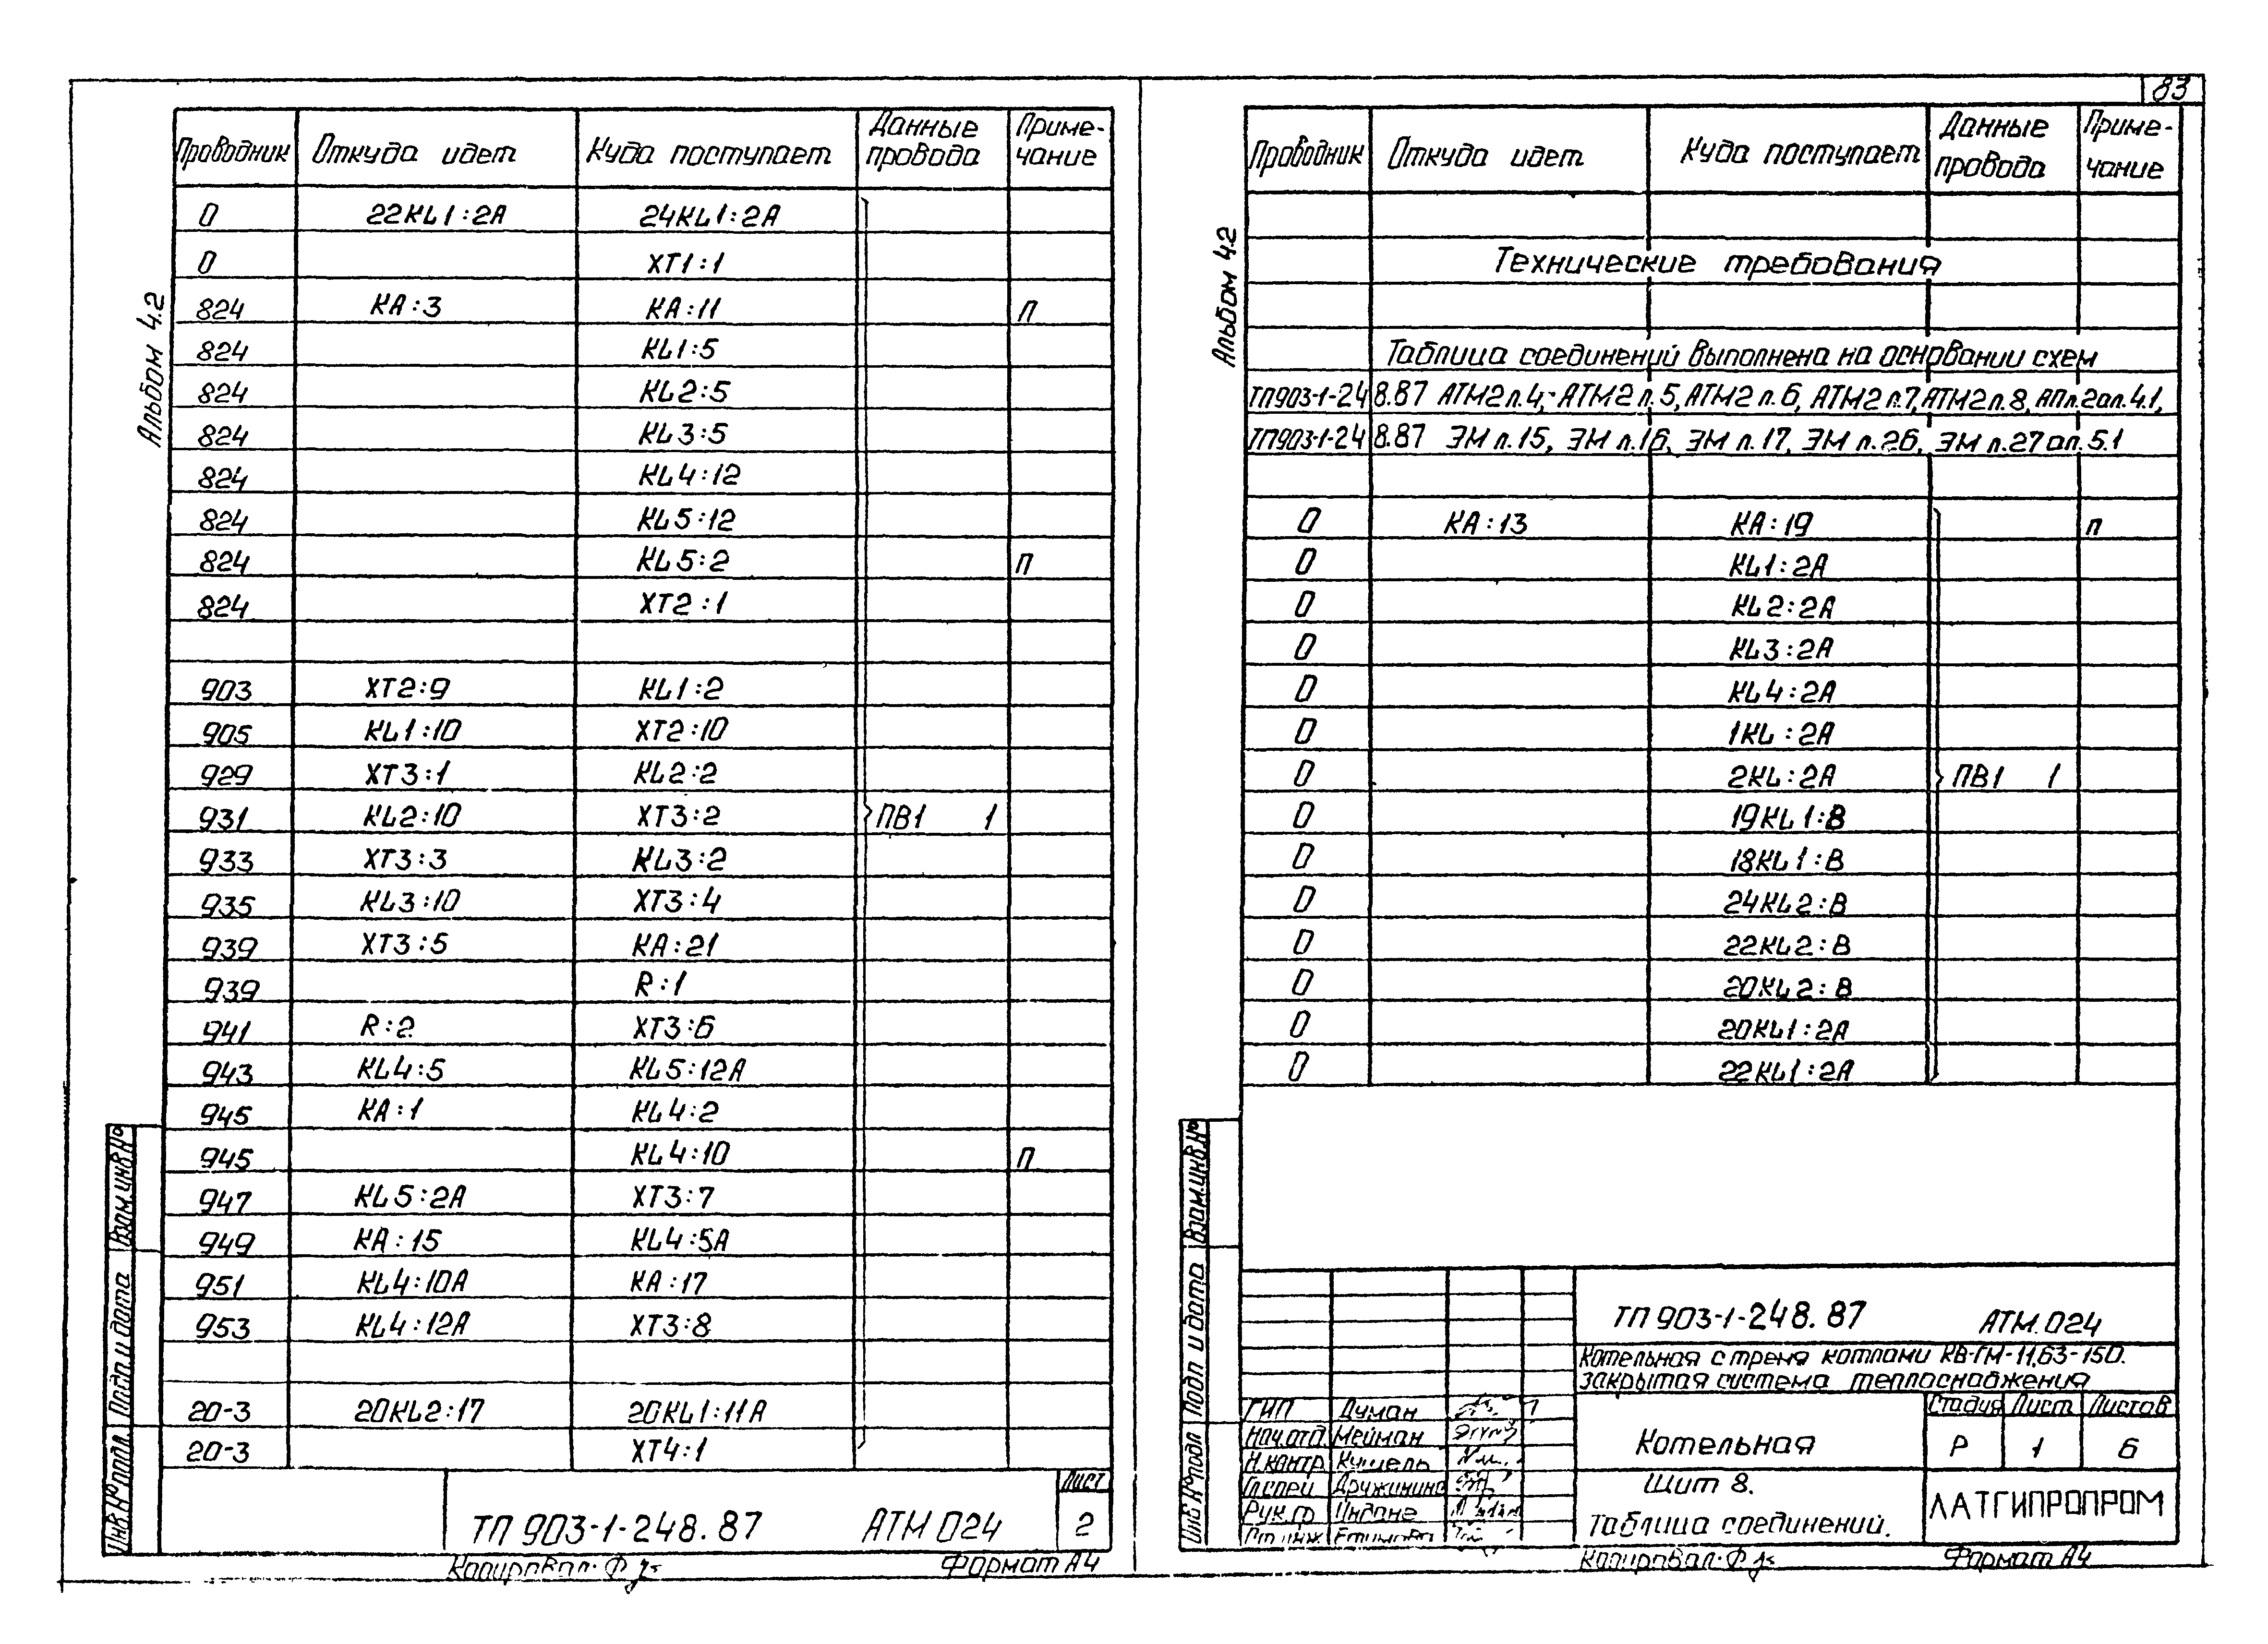 83
Альбом 4.2
Проводник Откуда идет Куда поступает Данные провода Примечание
0 22KL1:2A 24KL1:2A
0 XT1:1
824 KA:3 KA:11 п
824 KL1:5
824 KL2:5
824 KL3:5
824 KL4:12
824 KL5:12
824 KL5:2 п
824 XT2:1
903 XT2:9 KL1:2
905 KL1:10 XT2:10
929 XT3:1 KL2:2
931 KL2:10 XT3:2 ПВ1 1
933 XT3:3 KL3:2
935 KL3:10 XT3:4
939 XT3:5 KA:21
939 R:1
941 R:2 XT3:6
943 KL4:5 KL5:12A
945 KA:1 KL4:2
945 KL4:10 п
947 KL5:2A XT3:7
949 KA:15 KL4:5A
951 KL4:10A KA:17
953 KL4:12A XT3:8
20-3 20KL2:17 20KL1:11A
20-3 XT4:1
Взам.инв.№
Подп. и дата
Инв.№ подл.
ТП 903-1-248.87 АТМ 024
Лист
2
Копировал: Формат А4
Альбом 4.2
Проводник Откуда идет Куда поступает Данные провода Примечание
Технические требования
Таблица соединений выполнена на основании схем
ТП903-1-248.87 АТМ2 л.4, АТМ2 л.5, АТМ2 л.6, АТМ2 л.7, АТМ2 л.8, АПл.2 ал.4.1,
ТП903-1-248.87 ЭМ л.15, ЭМ л.16, ЭМ л.17, ЭМ л.26, ЭМ л.27 ал.5.1
0 KA:13 KA:19 п
0 KL1:2A
0 KL2:2A
0 KL3:2A
0 KL4:2A
0 1KL:2A
0 2KL:2A ПВ1 1
0 19KL1:B
0 18KL1:B
0 24KL2:B
0 22KL2:B
0 20KL2:B
0 20KL1:2A
0 22KL1:2A
Взам.инв.№
Подп и дата
Инв.№ подл
ТП 903-1-248.87 АТМ.024
Котельная с тремя котлами КВ-ГМ-11,63-150.
Закрытая система теплоснабжения
ГИП Думан
Нач.отд. Мейман
Н.контр. Кушель
Гл.спец
Рук.гр
Котельная
Стадия Лист Листов
Р 1 6
Щит 8.
Таблица соединений.
ЛАТГИПРОПРОМ
Копировал: Формат А4